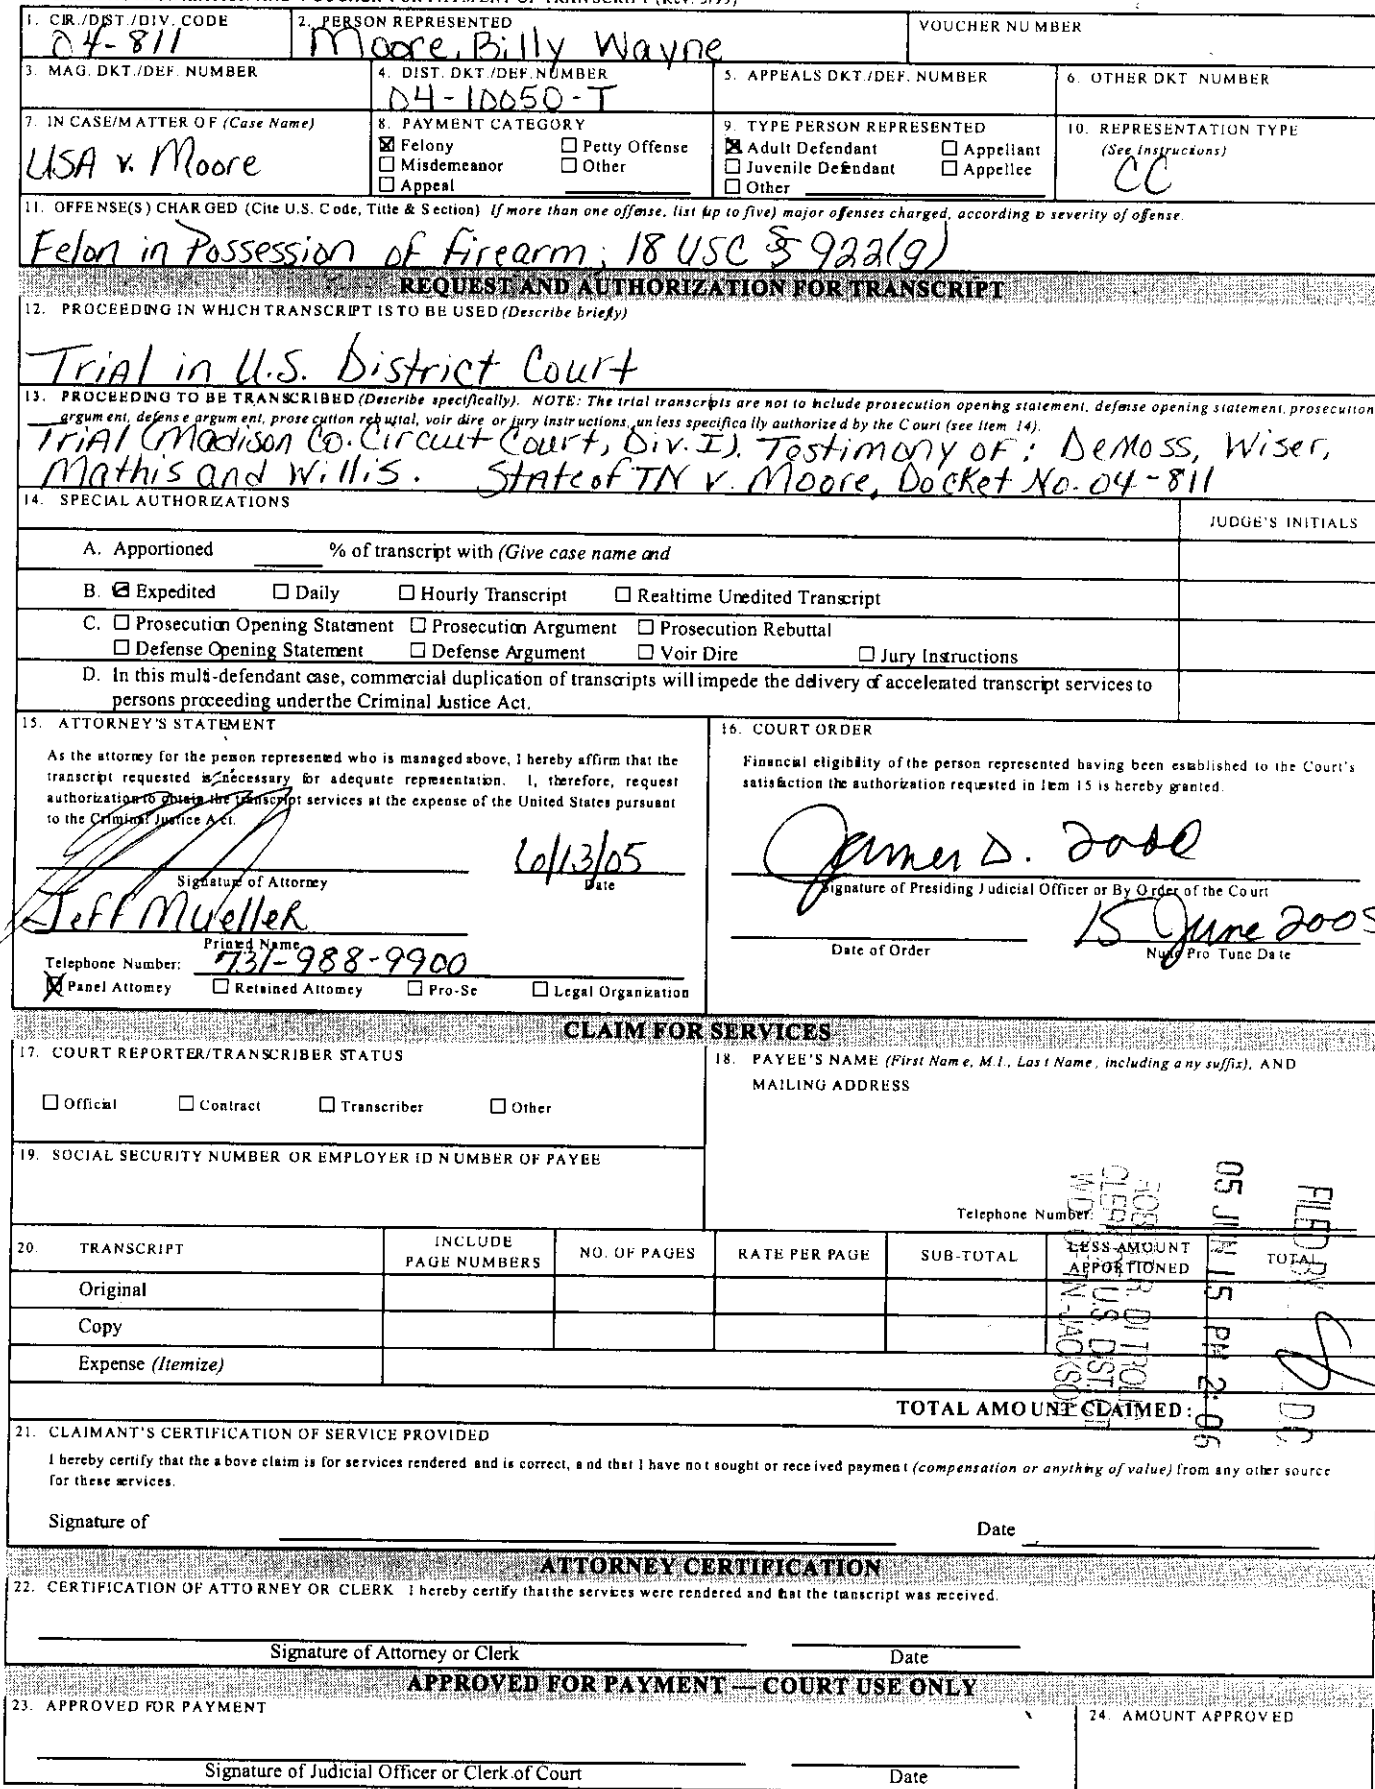 1. CIR./DIST./DIV. CODE
04-811
2. PERSON REPRESENTED
Moore, Billy Wayne
VOUCHER NUMBER
3. MAG. DKT./DEF. NUMBER
4. DIST. DKT./DEF. NUMBER
04-10050-T
5. APPEALS DKT./DEF. NUMBER
6. OTHER DKT NUMBER
7. IN CASE/MATTER OF (Case Name)
USA v. Moore
8. PAYMENT CATEGORY
☒ Felony ☐ Petty Offense
☐ Misdemeanor ☐ Other
☐ Appeal
9. TYPE PERSON REPRESENTED
☒ Adult Defendant ☐ Appellant
☐ Juvenile Defendant ☐ Appellee
☐ Other
10. REPRESENTATION TYPE
(See Instructions)
CC
11. OFFENSE(S) CHARGED (Cite U.S. Code, Title & Section) If more than one offense, list (up to five) major offenses charged, according to severity of offense.
Felon in Possession of firearm; 18 USC § 922(g)
REQUEST AND AUTHORIZATION FOR TRANSCRIPT
12. PROCEEDING IN WHICH TRANSCRIPT IS TO BE USED (Describe briefly)
Trial in U.S. District Court
13. PROCEEDING TO BE TRANSCRIBED (Describe specifically). NOTE: The trial transcripts are not to include prosecution opening statement, defense opening statement, prosecution
argument, defense argument, prosecution rebuttal, voir dire or jury instructions, unless specifically authorized by the Court (see Item 14).
Trial (Madison Co. Circuit Court, Div. I). Testimony of: DeMoss, Wiser,
Mathis and Willis. State of TN v. Moore, Docket No. 04-811
14. SPECIAL AUTHORIZATIONS
JUDGE'S INITIALS
A. Apportioned ______ % of transcript with (Give case name and
B. ☑ Expedited ☐ Daily ☐ Hourly Transcript ☐ Realtime Unedited Transcript
C. ☐ Prosecution Opening Statement ☐ Prosecution Argument ☐ Prosecution Rebuttal
☐ Defense Opening Statement ☐ Defense Argument ☐ Voir Dire ☐ Jury Instructions
D. In this multi-defendant case, commercial duplication of transcripts will impede the delivery of accelerated transcript services to
persons proceeding under the Criminal Justice Act.
15. ATTORNEY'S STATEMENT
As the attorney for the person represented who is managed above, I hereby affirm that the
transcript requested is necessary for adequate representation. I, therefore, request
authorization to obtain the transcript services at the expense of the United States pursuant
to the Criminal Justice Act.
6/13/05
Signature of Attorney Date
Jeff Mueller
Printed Name
Telephone Number: 731-988-9900
☒ Panel Attorney ☐ Retained Attorney ☐ Pro-Se ☐ Legal Organization
16. COURT ORDER
Financial eligibility of the person represented having been established to the Court's
satisfaction the authorization requested in Item 15 is hereby granted.
James D. Todd
Signature of Presiding Judicial Officer or By Order of the Court
15 June 2005
Date of Order Nunc Pro Tunc Date
CLAIM FOR SERVICES
17. COURT REPORTER/TRANSCRIBER STATUS
☐ Official ☐ Contract ☐ Transcriber ☐ Other
18. PAYEE'S NAME (First Name, M.I., Last Name, including any suffix), AND
MAILING ADDRESS
19. SOCIAL SECURITY NUMBER OR EMPLOYER ID NUMBER OF PAYEE
Telephone Number:
FILED BY D.C.
05 JUN 15 PM 2:06
CLERK, U.S. DIST.
20. TRANSCRIPT
INCLUDE
PAGE NUMBERS
NO. OF PAGES
RATE PER PAGE
SUB-TOTAL
LESS AMOUNT
APPORTIONED
TOTAL
Original
Copy
Expense (Itemize)
TOTAL AMOUNT CLAIMED:
21. CLAIMANT'S CERTIFICATION OF SERVICE PROVIDED
I hereby certify that the above claim is for services rendered and is correct, and that I have not sought or received payment (compensation or anything of value) from any other source
for these services.
Signature of Date
ATTORNEY CERTIFICATION
22. CERTIFICATION OF ATTORNEY OR CLERK I hereby certify that the services were rendered and that the transcript was received.
Signature of Attorney or Clerk Date
APPROVED FOR PAYMENT — COURT USE ONLY
23. APPROVED FOR PAYMENT
24. AMOUNT APPROVED
Signature of Judicial Officer or Clerk of Court Date